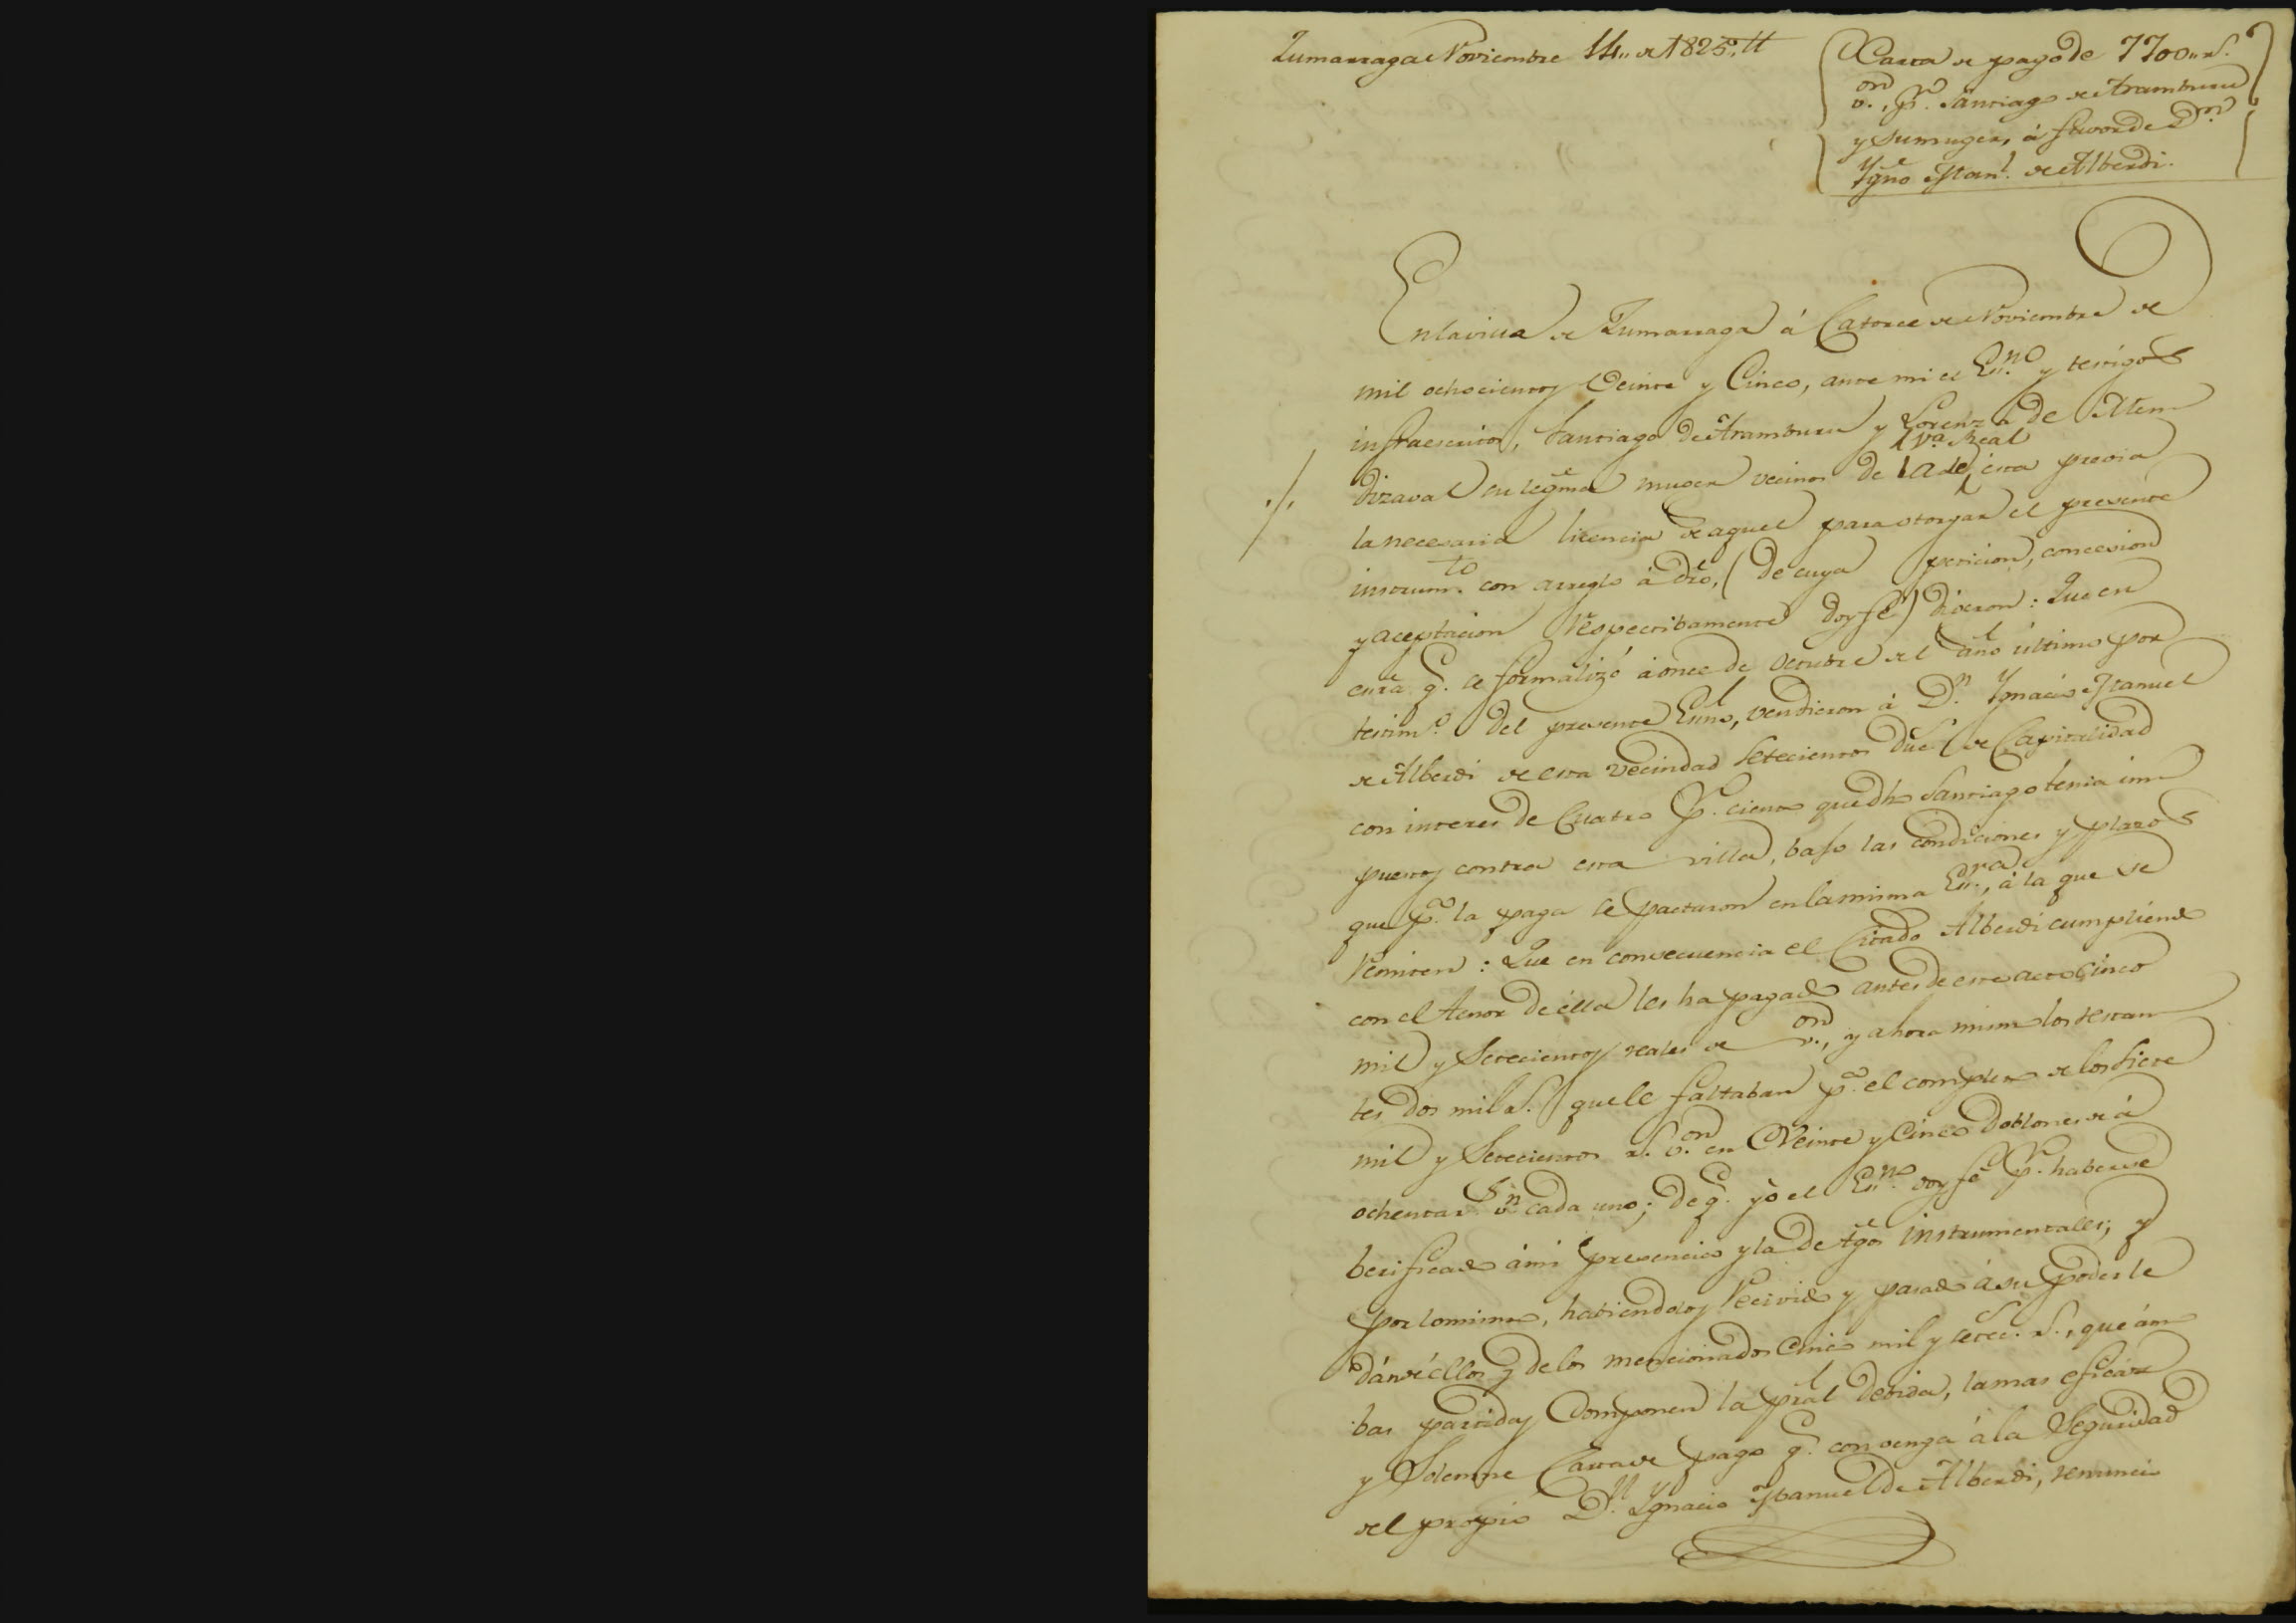 Zumarraga Noviembre 14,, de 1825.
Carta de pago de 7700,, rs.
von, pr. Santiago de Aramburu
y su muger, á favor de Dn.
Ygno Manl. de Alberdi.
En la villa de Zumarraga á Catorce de Noviembre de
mil ochocientos veinte y Cinco, ante mi el Esno. y testigos
infraescritos, Santiago de Aramburu y Lorenza de Men
dizaval su legma muger vecinos de la de esta previa
Va. Real
la necesaria licencia de aquel para otorgar el presente
instrumto. con arreglo á dro, (de cuya peticion, concesion
y aceptacion respectibamente doy fé) dixeron: Que en
esrã q. se formalizó á once de octubre del año último por
testimo. del presente Esno, vendieron á Dn. Ygnacio Manuel
de Alberdi de esta vecindad setecientos duc. de Capitalidad
con interes de Cuatro pr. ciento que dho Santiago tenia im
puestos contra esta villa, bajo las condiciones y plazos
que pa. la paga se pactaron en la misma Esra., á la que se
remiten: Que en consecuencia el Citado Alberdi cumpliendo
con el tenor de élla les ha pagado antes de este acto Cinco
mil y Setecientos reales de von, y ahora mismo los restan
tes dos mil rs. que le faltaban pa. el completo de los siete
mil y Setecientos rs. von en Veinte y Cinco Doblones de á
ochenta rs. vn cada uno; de q. yo el Esno. doy fé pr. haberse
berificado á mi presencia y la de tgos instrumentales; y
por lo mismo, habiendolos recivido y pasado á su poder le
dán de éllos y de los mencionados Cinco mil y setec. rs., que ám
bas partidas Componen la pral devida, la mas eficáz
y Solemne Carta de pago q. convenga á la Seguridad
del propio Dn. Ygnacio Manuel de Alberdi, renuncio